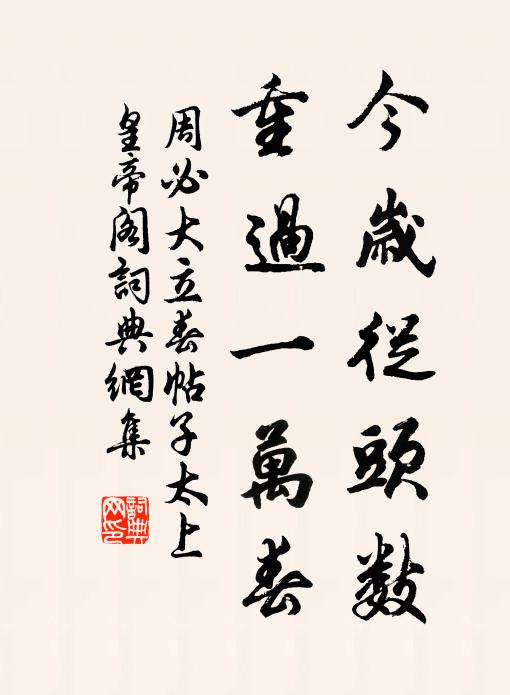 今歲從頭數
重過一萬春
周必大立春帖子太上
皇帝閣詞典網集
詞典網印